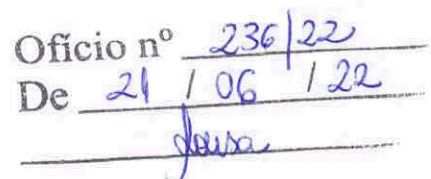 Ofício nº 236/22
De 21 / 06 / 22